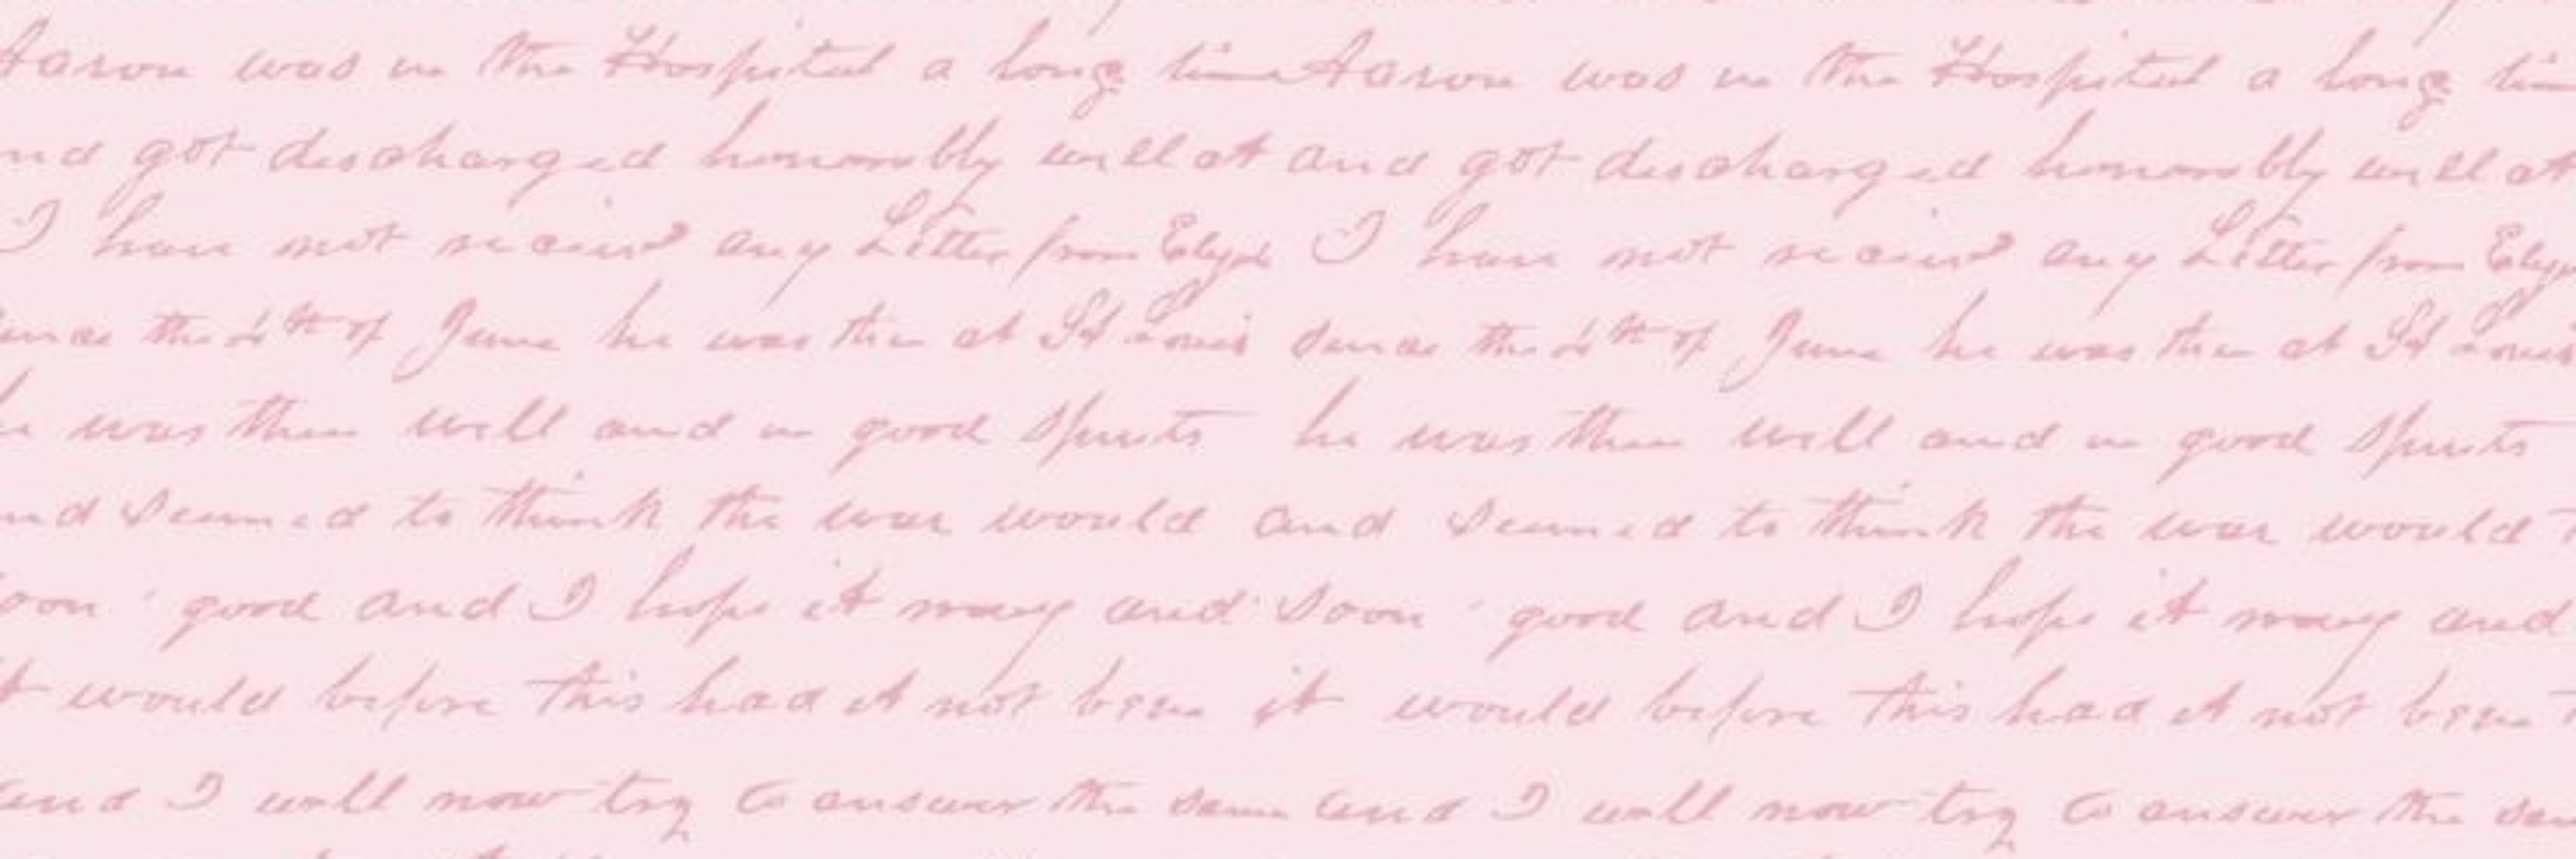 Aaron was in the Hospital a long time Aaron was in the Hospital a long tim
nd got discharged honorably well at and got discharged honorably well at
I have not recievd any Letter from I have not recievd any Letter from
ence the of June he was then at St Louis sence the of June he was then at St Louis
he was then well and in good spirits he was then well and in good spirits
and seemed to think the war would and seemed to think the war would
soon good and I hope it may and soon good and I hope it may and
it would before this had it not been it would before this had it not been
and I will now try to answer the same and I will now try to answer the sa